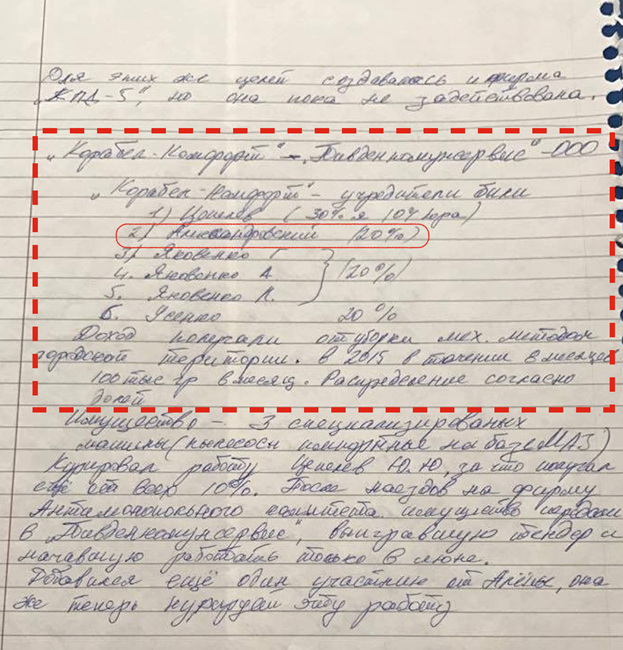 Для этих же целей создавалась и фирма
„КПД-5", но она пока не задействована.
„Корабел-Комфорт" – „Пивденкомунсервис" – ООО
„Корабел-Комфорт" – учредители были
1) Цпилев (30% я 10%
2) Александровский (20%)
3) Яковенко Г
4. Яковенко А. (20%)
5. Яковенко К.
6. Усенко 20%
Доход получали от уборки мех. методом
городской територии. в 2015 в течении 8 месяцев
100 тыс гр в месяц. Распределение согласно
долей
Имущество – 3 специализированых
машины (пылесосы импортные на базе МАЗ)
работу Ю.Ю, за что получал
ещё от всех 10%. После наездов на фирму
Антимонопольного комитета имущество передали
в „Пивденкомунсервис", выигравшую тендер и
начавшую работать только в июне.
Добавился ещё один участник от Алёны, она
же теперь курирует эту работу